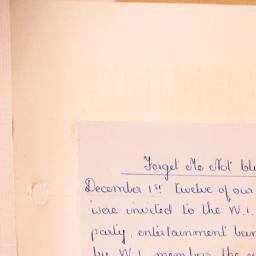 Forget Me Not Clu
December 1st Twelve of our
were invited to the W.I.
party, entertainment bein
by W.I. members the